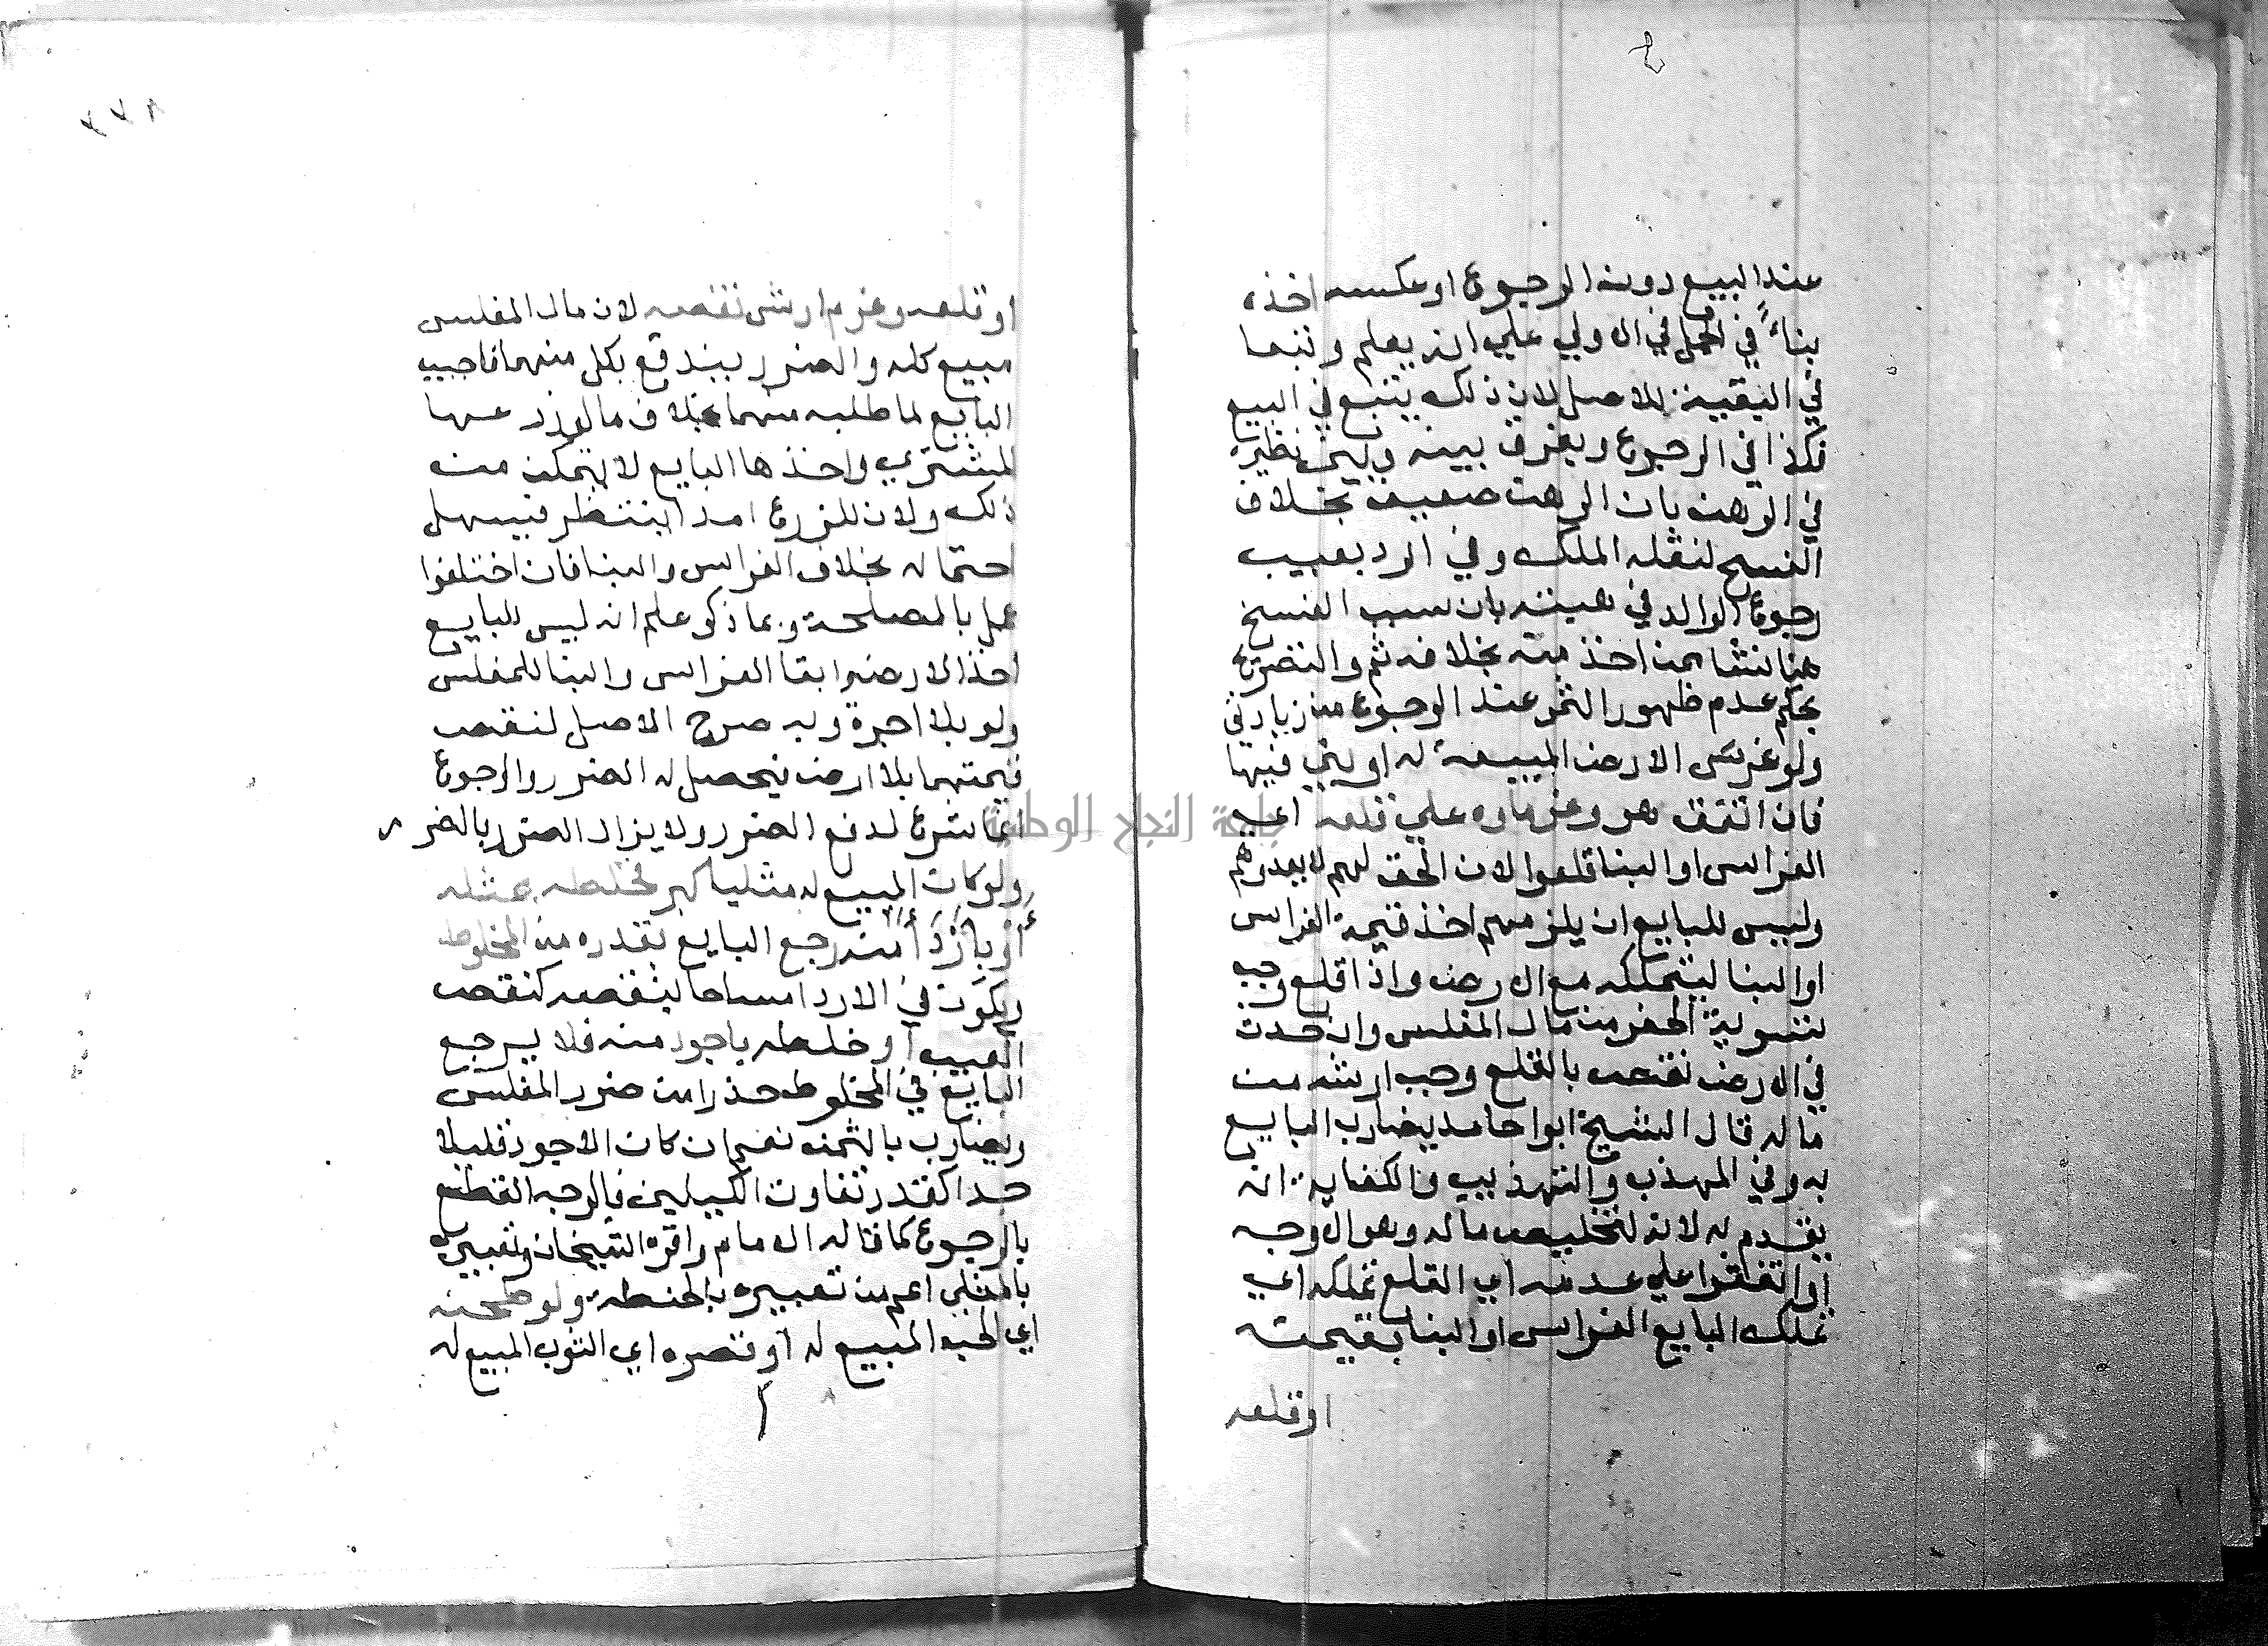 عند البيع دون الرجوع او عكسه اخذه
بناءً في الحمل في الاولي علي انه يعلم وتبعا
في البقية للاصل لان ذلك يتبع في البيع
فكذا في الرجوع ويفرق بينه وبين نظيره
في الرهن بان الرهن ضعيف بخلاف
الفسخ لنقله الملك وفي الرد بعيب
رجوع الوالد في هبته بان سبب الفسخ
هنا نشا ممن اخذ منه بخلافه ثم والتصريح
بحكم عدم ظهور الثمر عند الرجوع من زيادتي
ولو غرس الارض المبيعة له او بني فيها
فان اتفق هو وغرماوه علي قلعه اي
الغراس او البنا قلعوا لان الحق لهم لا يعدوهم
وليس للبايع ان يلزمهم اخذ قيمة الغراس
او البنا ليتملكه مع الارض واذا قلع وجب
تسوية الحفر من مال المفلس وان حدث
في الارض نقص بالقلع وجب ارشه من
ماله قال الشيخ ابوا حامد يضارب البايع
به وفي المهذب والتهذيب والكفاية انه
يقدم به لانه لتخليص ماله وهو الاوجه
او اتفقوا علي عدمه اي القلع تملكه اي
تملك البايع الغراس او البنا بقيمته
او قلعه
٣٧٨
او قلعه وغرم ارش نقصه لان مال المفلس
مبيع كله والضرر يندفع بكل منهما فاجيب
البايع لما طلبه منهما بخلاف ما لو زرعها
المشتري واخذها البايع لا يتمكن من
ذلك ولان للزرع امدا ينتظر فيسهل
احتماله بخلاف الغراس والبنا فان اختلفوا
عمل بالمصلحة وبما ذكر علم انه ليس للبايع
اخذ الارض وابقا الغراس والبنا للمفلس
ولو بلا اجرة وبه صرح الاصل لنقص
قيمتهما بلا ارض فيحصل له الضرر والرجوع
انما شرع لدفع الضرر ولا يزال الضرر بالضرر
ولو كان المبيع له مثليا كبر فخلطه بمثله
أو بأردأ منه رجع البايع بقدره من المخلوط
ويكون في الاردا مسامحا بنقصه كنقص
العيب او خلطه باجود منه فلا يرجع
البايع في المخلوط حذرا من ضرر المفلس
ويضارب بالثمن نعم ان كان الاجود قليلا
جدا كقدر تفاوت الكيلين فالوجه القطع
بالرجوع كما قاله الامام واقره الشيخان وتعبيره
بالمثلي اعم من تعبيره بالحنطة ولو طحنه
اي الحب المبيع له او قصره اي الثوب المبيع له
جامعة النجاح الوطنية